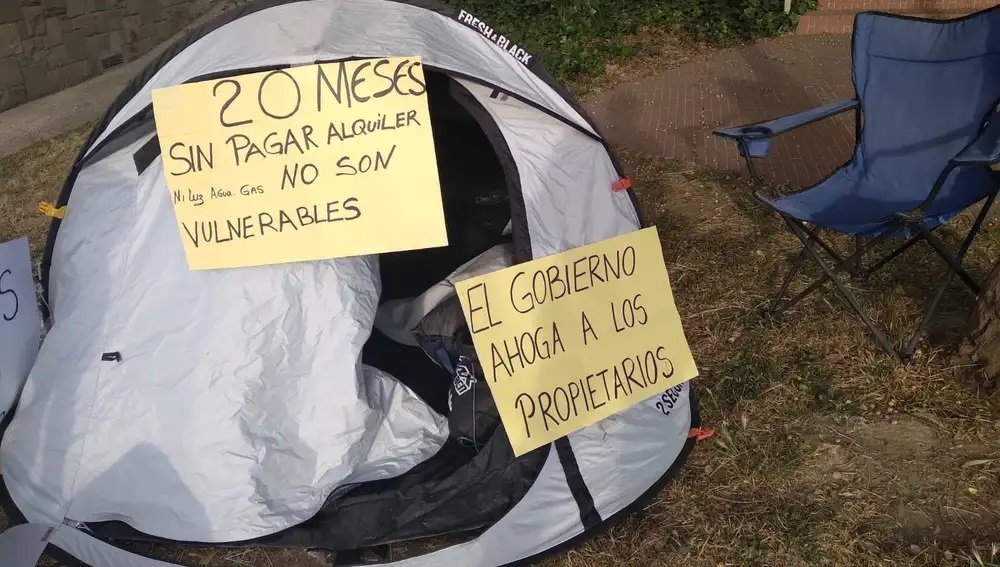 FRESH & BLACK
20 MESES
SIN PAGAR ALQUILER
NI LUZ AGUA. GAS NO SON
VULNERABLES
EL GOBIERNO
AHOGA A LOS
PROPIETARIOS